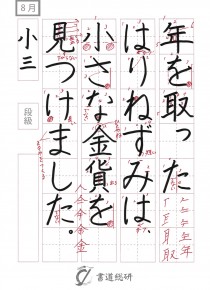 8月
年を取った
はりねずみは、
小さな金貨を
見つけました。
小三
段級
書道総研